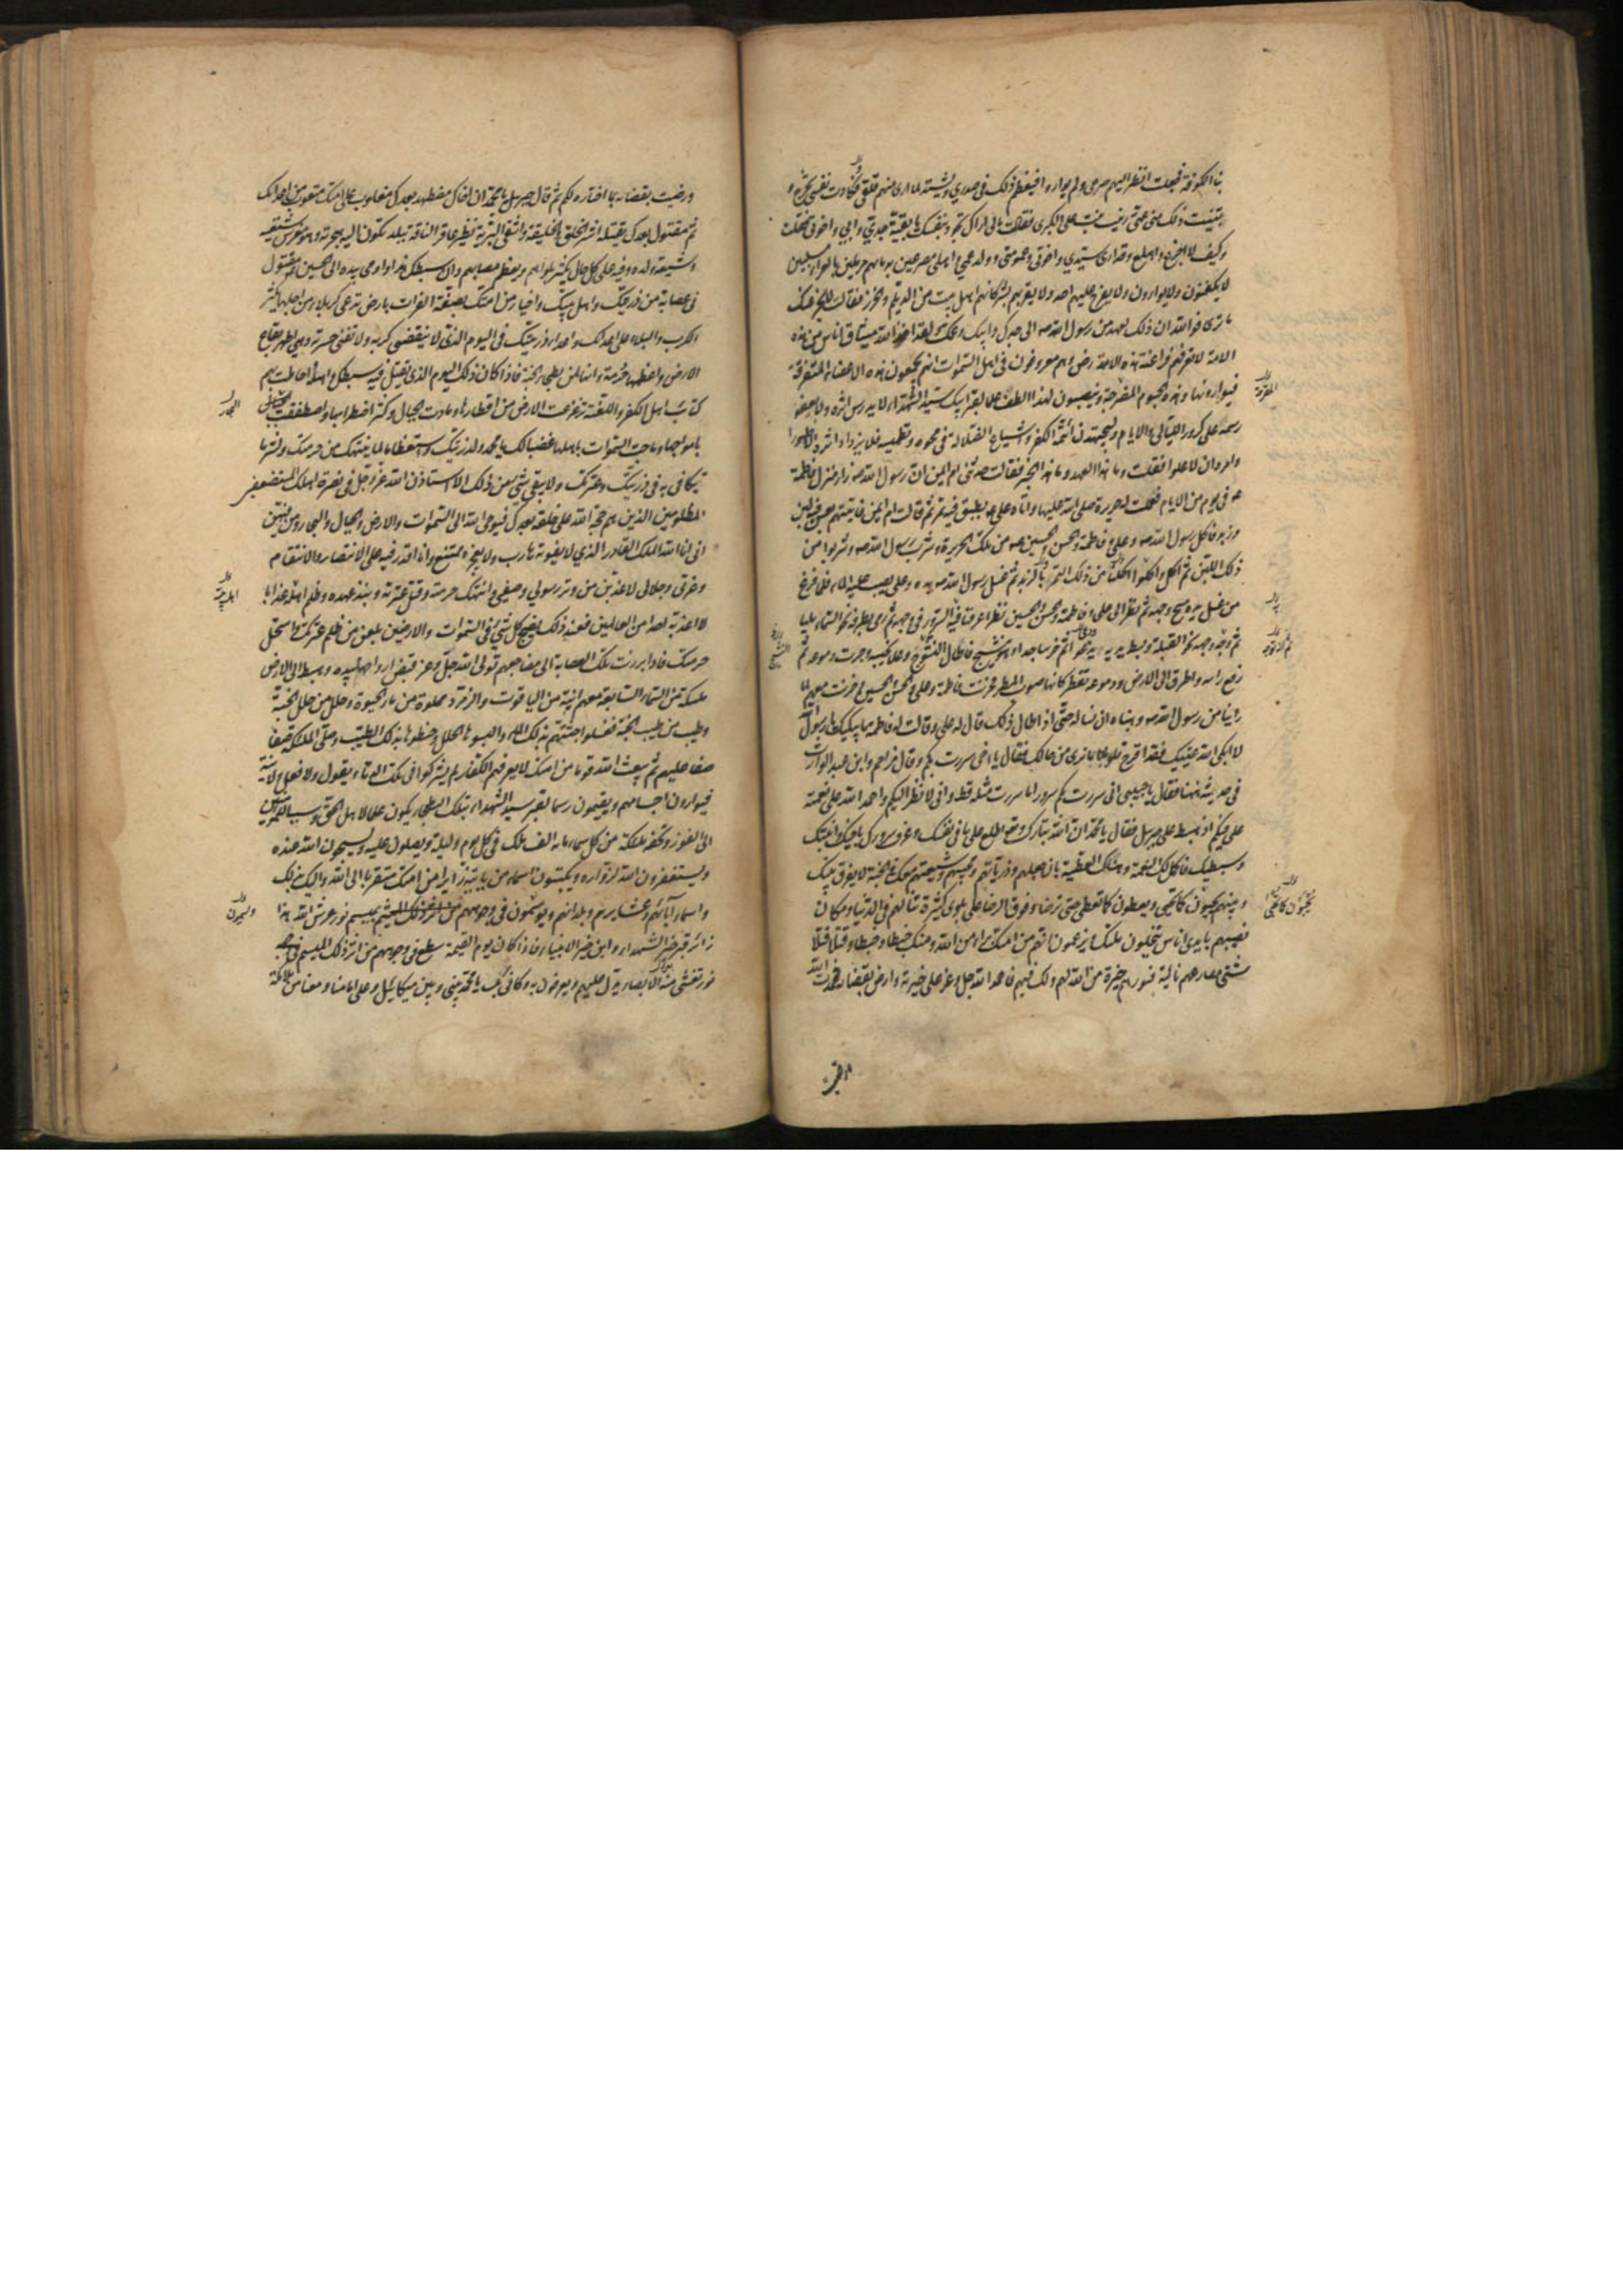 بنا الكوفة فجعلت انظر اليهم صرعى ولم يواروا فيعظم ذلك في صدري ويشتد لما ارى منهم قلقي فكادت نفسي تخرج و
تبينت ذلك مني عمتي زينب بنت علي الكبرى فقالت مالي اراك تجود بنفسك يا بقية جدي وابي واخوتي فقلت
وكيف لا اجزع واهلع وقد ارى سيدي واخوتي وعمومتي وولد عمي واهلي مصرعين بدمائهم مرملين بالعراء مسلبين
لا يكفنون ولا يوارون ولا يعرج عليهم احد ولا يقربهم بشر كانهم اهل بيت من الديلم والخزر فقالت لا يجزعنك
ما ترى فوالله ان ذلك لعهد من رسول الله ص الى جدك وابيك وعمك ولقد اخذ الله ميثاق اناس من هذه
الامة لا تعرفهم فراعنة هذه الارض وهم معروفون في اهل السموات انهم يجمعون هذه الاعضاء المتفرقة
فيوارونها وهذه الجسوم المضرجة وينصبون لهذا الطف علما لقبر ابيك سيد الشهداء لا يدرس اثره ولا يعفو
رسمه على كرور الليالي والايام وليجتهدن ائمة الكفر واشياع الضلالة في محوه وتطميسه فلا يزداد اثره الا ظهورا
وامره الا علوا فقلت وما هذا العهد وما هذا الخبر فقالت حدثتني ام ايمن ان رسول الله ص زار منزل فاطمة
ع في يوم من الايام فعملت له حريرة صلى الله عليهما واتاه علي ع بطبق فيه تمر ثم قالت ام ايمن فاتيتهم بعس فيه لبن
وزبد فاكل رسول الله ص وعلي وفاطمة والحسن والحسين ع من تلك الحريرة وشرب رسول الله ص وشربوا من
ذلك اللبن ثم اكل واكلوا من ذلك التمر بالزبد ثم غسل رسول الله ص يده وعلي يصب عليه الماء فلما فرغ
من غسل يده مسح وجهه ثم نظر الى علي وفاطمة والحسن والحسين نظرا عرفنا فيه السرور في وجهه ثم رمق بطرفه نحو السماء مليا
ثم وجه وجهه نحو القبلة وبسط يديه يدعو ثم خر ساجدا وهو ينشج فاطال النشوج وعلا نحيبه وجرت دموعه ثم
رفع راسه واطرق الى الارض ودموعه تقطر كانها صوب المطر فحزنت فاطمة وعلي والحسن والحسين وحزنت معهم لما
راينا من رسول الله ص وهبناه ان نساله حتى اذا طال ذلك قال له علي وقالت له فاطمة ما يبكيك يا رسول الله
لا ابكى الله عينيك فقد اقرح قلوبنا ما نرى من حالك فقال يا اخي سررت بكم وقال مزاحم وابن عبد الوارث
في حديثه ههنا فقال يا حبيبي اني سررت بكم سرورا ما سررت مثله قط واني لانظر اليكم واحمد الله على نعمته
علي فيكم اذ هبط علي جبرئيل فقال يا محمد ان الله تبارك وتع اطلع على ما في نفسك وعرف سرورك باخيك وابنتك
وسبطيك فاكمل لك النعمة وهناك العطية بان جعلهم وذرياتهم ومحبيهم وشيعتهم معك في الجنة لا يفرق بينك
وبينهم يحبون كما تحبى ويعطون كما تعطى حتى ترضى وفوق الرضا على بلوى كثيرة تنالهم في الدنيا ومكاره
تصيبهم بايدي اناس ينتحلون ملتك ويزعمون انهم من امتك براء من الله ومنك خبطا خبطا وقتلا قتلا
شتى مصارعهم نائية قبورهم خيرة من الله لهم ولك فيهم فاحمد الله جل وعز على خيرته وارض بقضائه فحمدت الله
ورضيت بقضائه بما اختاره لكم ثم قال جبرئيل يا محمد ان اخاك مضطهد بعدك مغلوب على امتك متعوب من اعدائك
ثم مقتول بعدك يقتله اشر الخلق والخليقة واشقى البرية نظير عاقر الناقة ببلد تكون اليه هجرته وهو مغرس شيعته
وشيعة ولده وفيه على كل حال يكثر بلواهم ويعظم مصابهم وان سبطك هذا واومى بيده الى الحسين ع مقتول
في عصابة من ذريتك واهل بيتك واخيار من امتك بضفة الفرات بارض تدعى كربلاء من اجلها يكثر
الكرب والبلاء على اعدائك واعداء ذريتك في اليوم الذي لا ينقضي كربه ولا تفنى حسرته وهي اطهر بقاع
الارض واعظمها حرمة وانها لمن بطحاء الجنة فاذا كان ذلك اليوم الذي يقتل فيه سبطك واهله واحاطت بهم
كتائب اهل الكفر واللعنة تزعزعت الارض من اقطارها ومادت الجبال وكثر اضطرابها واصطفقت البحار
بامواجها وماجت السموات باهلها غضبا لك يا محمد ولذريتك واستعظاما لما ينتهك من حرمتك ولشر ما
تكافى به في ذريتك وعترتك ولا يبقى شيء من ذلك الا استاذن الله عز وجل في نصرة اهلك المستضعفين
المظلومين الذين هم حجة الله على خلقه بعدك فيوحي الله الى السموات والارض والجبال والبحار ومن فيهن
اني انا الله الملك القادر الذي لا يفوته هارب ولا يعجزه ممتنع وانا اقدر فيه على الانتصار والانتقام
وعزتي وجلالي لاعذبن من وتر رسولي وصفيي وانتهك حرمته وقتل عترته ونبذ عهده وظلم اهله عذابا
لا اعذبه احدا من العالمين فعند ذلك يضج كل شيء في السموات والارضين بلعن من ظلم عترتك واستحل
حرمتك فاذا برزت تلك العصابة الى مضاجعها تولى الله جل وعز قبض ارواحها بيده وهبط الى الارض
ملائكة من السماء السابعة معهم انية من الياقوت والزمرد مملوة من ماء الحيوة وحلل من حلل الجنة
وطيب من طيب الجنة فغسلوا جثثهم بذلك الماء والبسوها الحلل وحنطوها بذلك الطيب وصلى الملائكة صفا
صفا عليهم ثم يبعث الله قوما من امتك لا يعرفهم الكفار لم يشركوا في تلك الدماء بقول ولا فعل ولا نية
فيوارون اجسامهم ويقيمون رسما لقبر سيد الشهداء بتلك البطحاء يكون علما لاهل الحق وسببا للمؤمنين
الى الفوز وتحفه ملائكة من كل سماء مائة الف ملك في كل يوم وليلة ويصلون عليه ويسبحون الله عنده
ويستغفرون الله لزواره ويكتبون اسماء من ياتيه زائرا من امتك متقربا الى الله واليك بذلك
واسماء آبائهم وعشائرهم وبلدانهم ويوسمون في وجوههم بميسم نور عرش الله هذا
زائر قبر خير الشهداء وابن خير الانبياء فاذا كان يوم القيمة سطع في وجوههم من اثر ذلك الميسم نور
نور تغشى منه الابصار يدل عليهم ويعرفون به وكاني بك يا محمد بيني وبين ميكائيل وعلي امامنا ومعنا من ملائكة